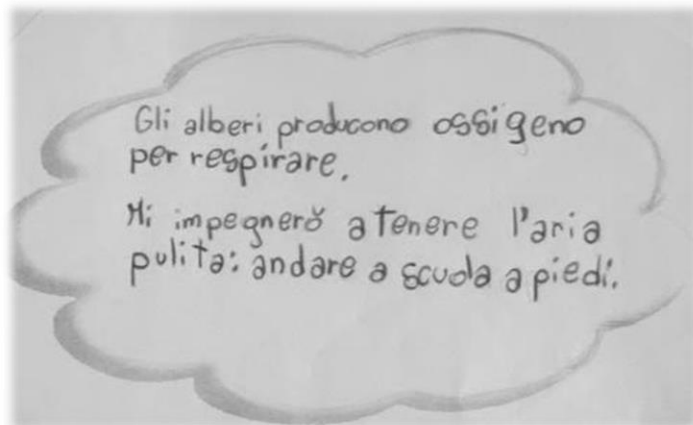 Gli alberi producono ossigeno
per respirare.
Mi impegnerò a tenere l'aria
pulita: andare a scuola a piedi.